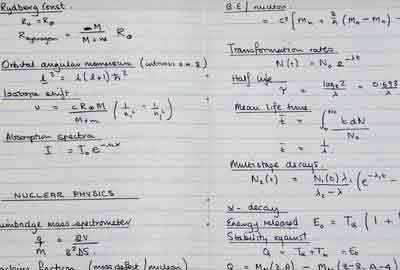 Rydberg Const.
R₀ = R∞
R_Hydrogen = M / (M + m) R∞
Orbital angular momentum
l² = l(l+1) ħ²
Isotope shift.
υ = c R∞ M / (M + m) (1/n₁² - 1/n₂²)
Absorption spectra
I = I₀ e
NUCLEAR PHYSICS
mass spectrometer
q/m = 2V / B²
fraction (mass defect / nucleon)
B.E / nucleon
= c² [Mn + Z/A (MH - Mn) -
Transformation rates
N(t) = N₀ e^-λt
Half life
τ = logₑ2 / λ = 0.693
Mean life time
t̄ = ∫ t dN / N₀
t̄ = 1/λ
Multistage decays.
N₂(t) = N₁(0) λ₁ / (λ₂ - λ) (e^-λ₁t -
α - decay
Energy released E₀ = Tα (1 +
Stability against
Q = Tα + Tb = E₀
Q = M (Z,A) - M (Z-2, A-4)